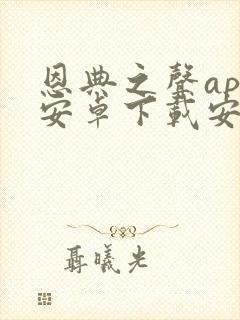 恩典之聲ap
安卓下載安
聶曦光